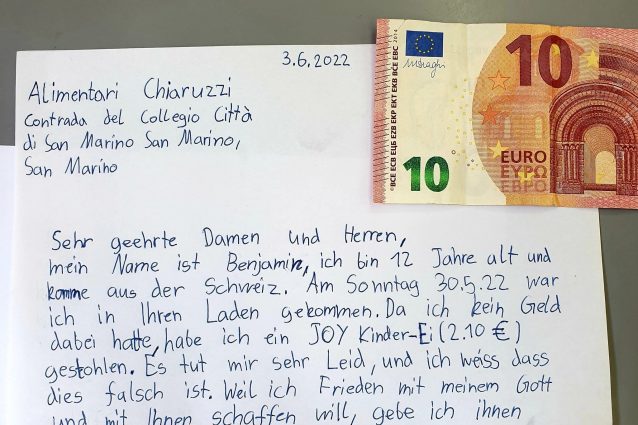 3.6.2022
Alimentari Chiaruzzi
Contrada del Collegio Città
di San Marino San Marino,
San Marino
Sehr geehrte Damen und Herren,
mein Name ist Benjamin, ich bin 12 Jahre alt und
komme aus der Schweiz. Am Sonntag 30.5.22 war
ich in Ihren Laden gekommen. Da ich kein Geld
dabei hatte, habe ich ein JOY Kinder-Ei (2.10 €)
gestohlen. Es tut mir sehr Leid, und ich weiss dass
dies falsch ist. Weil ich Frieden mit meinem Gott
und mit Ihnen schaffen will, gebe ich ihnen
10
10
EURO
ΕΥΡΩ
ЕВРО
©BCE ECB ЕЦБ EZB EKP EKT EKB BĊE EBC 2014